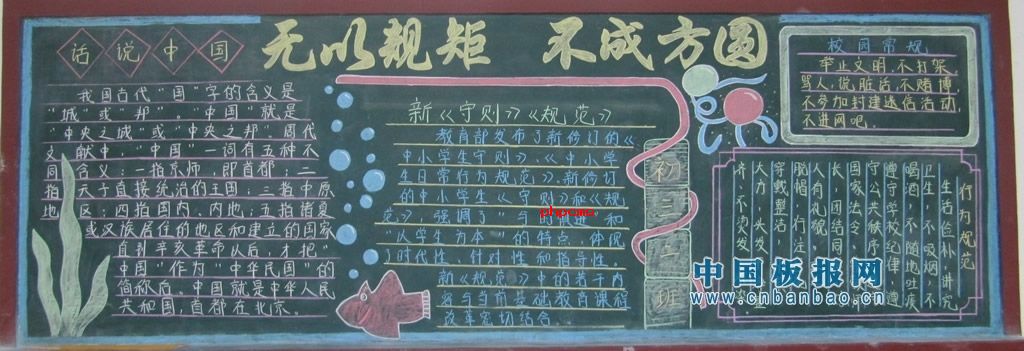 无以规矩 不成方圆
话说中国
我国古代“国”字的含义是
“城”或“邦”。“中国”就是
“中央之城”或“中央之邦”。周代
文献中,“中国”一词有五种不
同含义:一指京师,即首都;二
指天子直接统治的王国;三指中原
地区;四指国内、内地;五指诸夏
或汉族居住的地区和建立的国家
直到辛亥革命以后,才把“
中国”作为“中华民国”的
简称。中国就是中华人民
共和国,首都在北京。
新《守则》《规范》
教育部发布了新修订的《
中小学生守则》、《中小学
生日常行为规范》。新修订
的中小学生《守则》和《规
范》,强调了“与时俱进”和
“以学生为本”的特点,体现
了时代性、针对性和指导性。
新《规范》中的若干内
容与当前基础教育课程
改革密切结合。
phpcms
初
三
二
班
校园常规
举止文明,不打架
骂人,说脏话,不赌博
不参加封建迷信活动
不进网吧。
行为规范
生活俭朴,讲究
卫生,不吸烟,不
喝酒,不随地吐痰
遵守学校纪律,遵
守公共秩序,
国家法令
长,团结同
人有礼貌,
脱帽、行注
穿戴整洁,
大方,头发
齐,不烫发
中国板报网
www.cnbanbao.cn